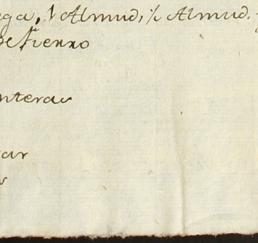 ega, 1 Almud, ½ Almud.
de fierro
nteras
ar